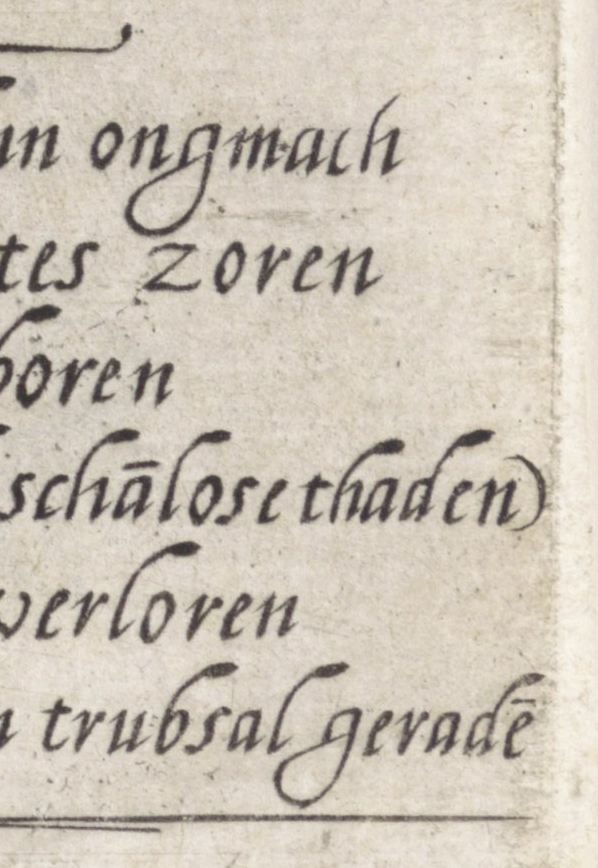 un ongmach
tes zoren
boren
schālose thaden)
verloren
trubsal geradē